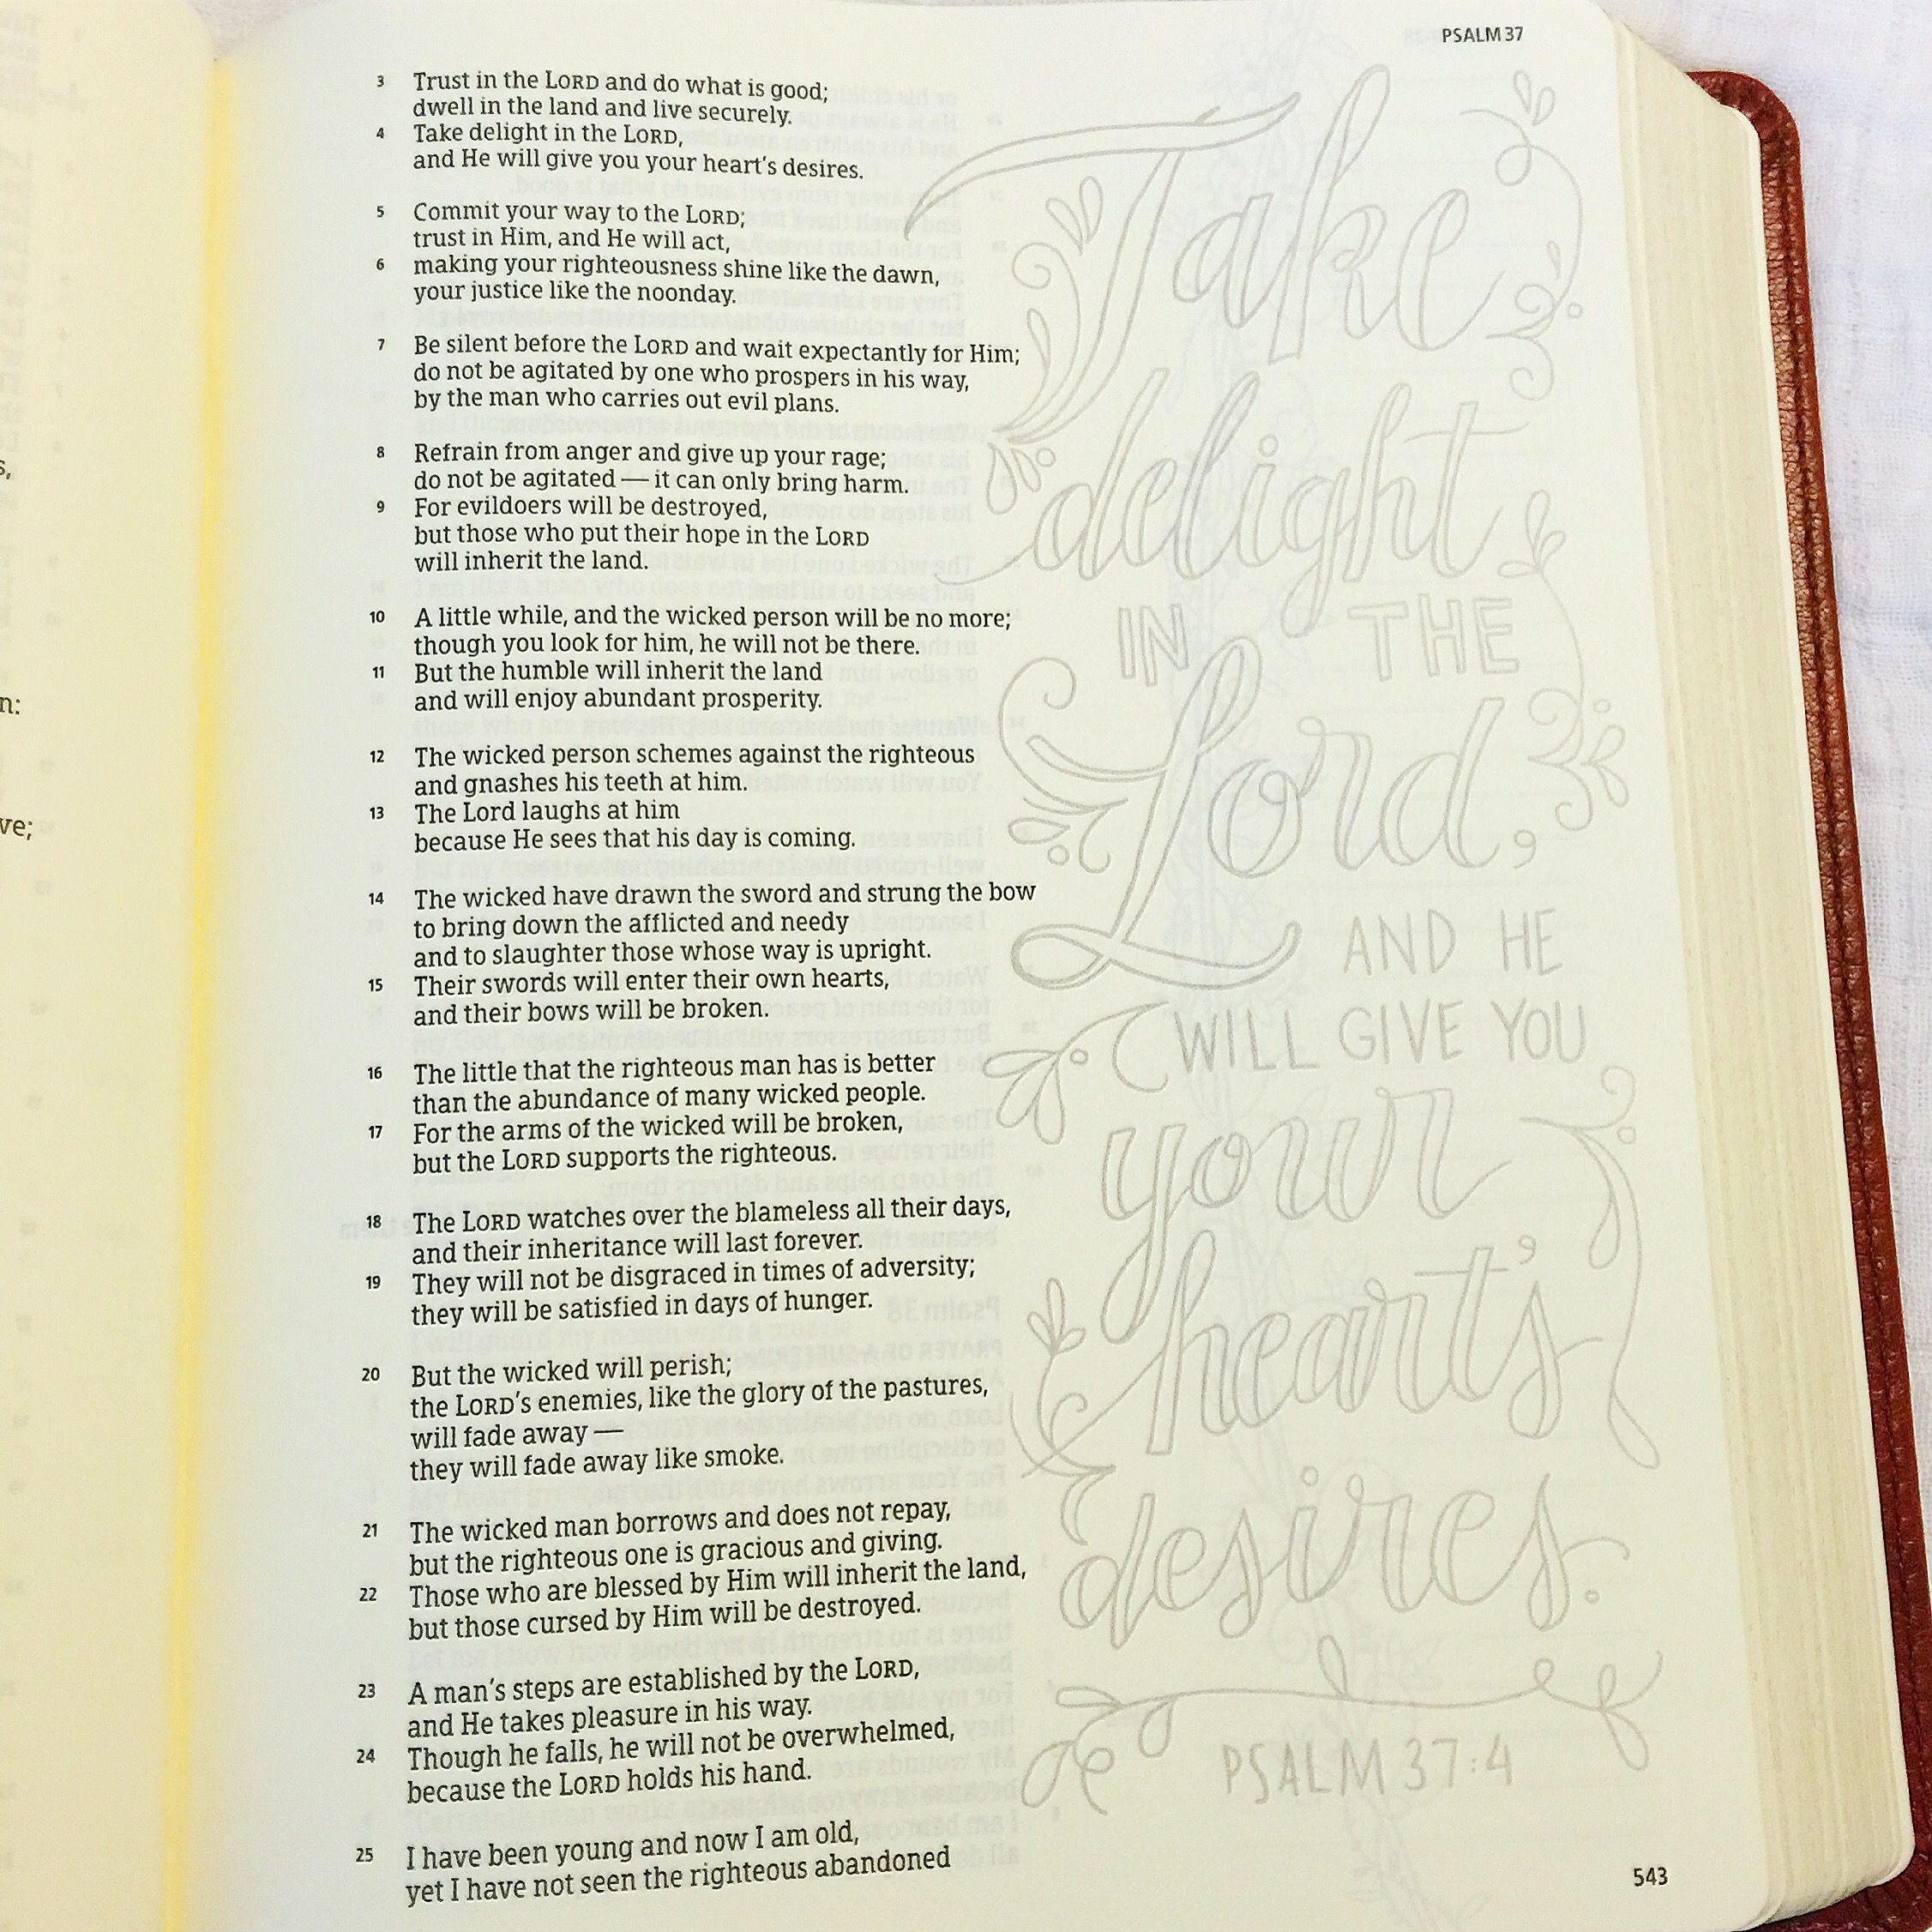 PSALM 37
3 Trust in the LORD and do what is good;
dwell in the land and live securely.
4 Take delight in the LORD,
and He will give you your heart's desires.
5 Commit your way to the LORD;
trust in Him, and He will act,
6 making your righteousness shine like the dawn,
your justice like the noonday.
7 Be silent before the LORD and wait expectantly for Him;
do not be agitated by one who prospers in his way,
by the man who carries out evil plans.
8 Refrain from anger and give up your rage;
do not be agitated — it can only bring harm.
9 For evildoers will be destroyed,
but those who put their hope in the LORD
will inherit the land.
10 A little while, and the wicked person will be no more;
though you look for him, he will not be there.
11 But the humble will inherit the land
and will enjoy abundant prosperity.
12 The wicked person schemes against the righteous
and gnashes his teeth at him.
13 The Lord laughs at him
because He sees that his day is coming.
14 The wicked have drawn the sword and strung the bow
to bring down the afflicted and needy
and to slaughter those whose way is upright.
15 Their swords will enter their own hearts,
and their bows will be broken.
16 The little that the righteous man has is better
than the abundance of many wicked people.
17 For the arms of the wicked will be broken,
but the LORD supports the righteous.
18 The LORD watches over the blameless all their days,
and their inheritance will last forever.
19 They will not be disgraced in times of adversity;
they will be satisfied in days of hunger.
20 But the wicked will perish;
the LORD's enemies, like the glory of the pastures,
will fade away —
they will fade away like smoke.
21 The wicked man borrows and does not repay,
but the righteous one is gracious and giving.
22 Those who are blessed by Him will inherit the land,
but those cursed by Him will be destroyed.
23 A man's steps are established by the LORD,
and He takes pleasure in his way.
24 Though he falls, he will not be overwhelmed,
because the LORD holds his hand.
25 I have been young and now I am old,
yet I have not seen the righteous abandoned
Take
delight
IN THE
Lord,
AND HE
WILL GIVE YOU
your
heart's
desires.
PSALM 37:4
543